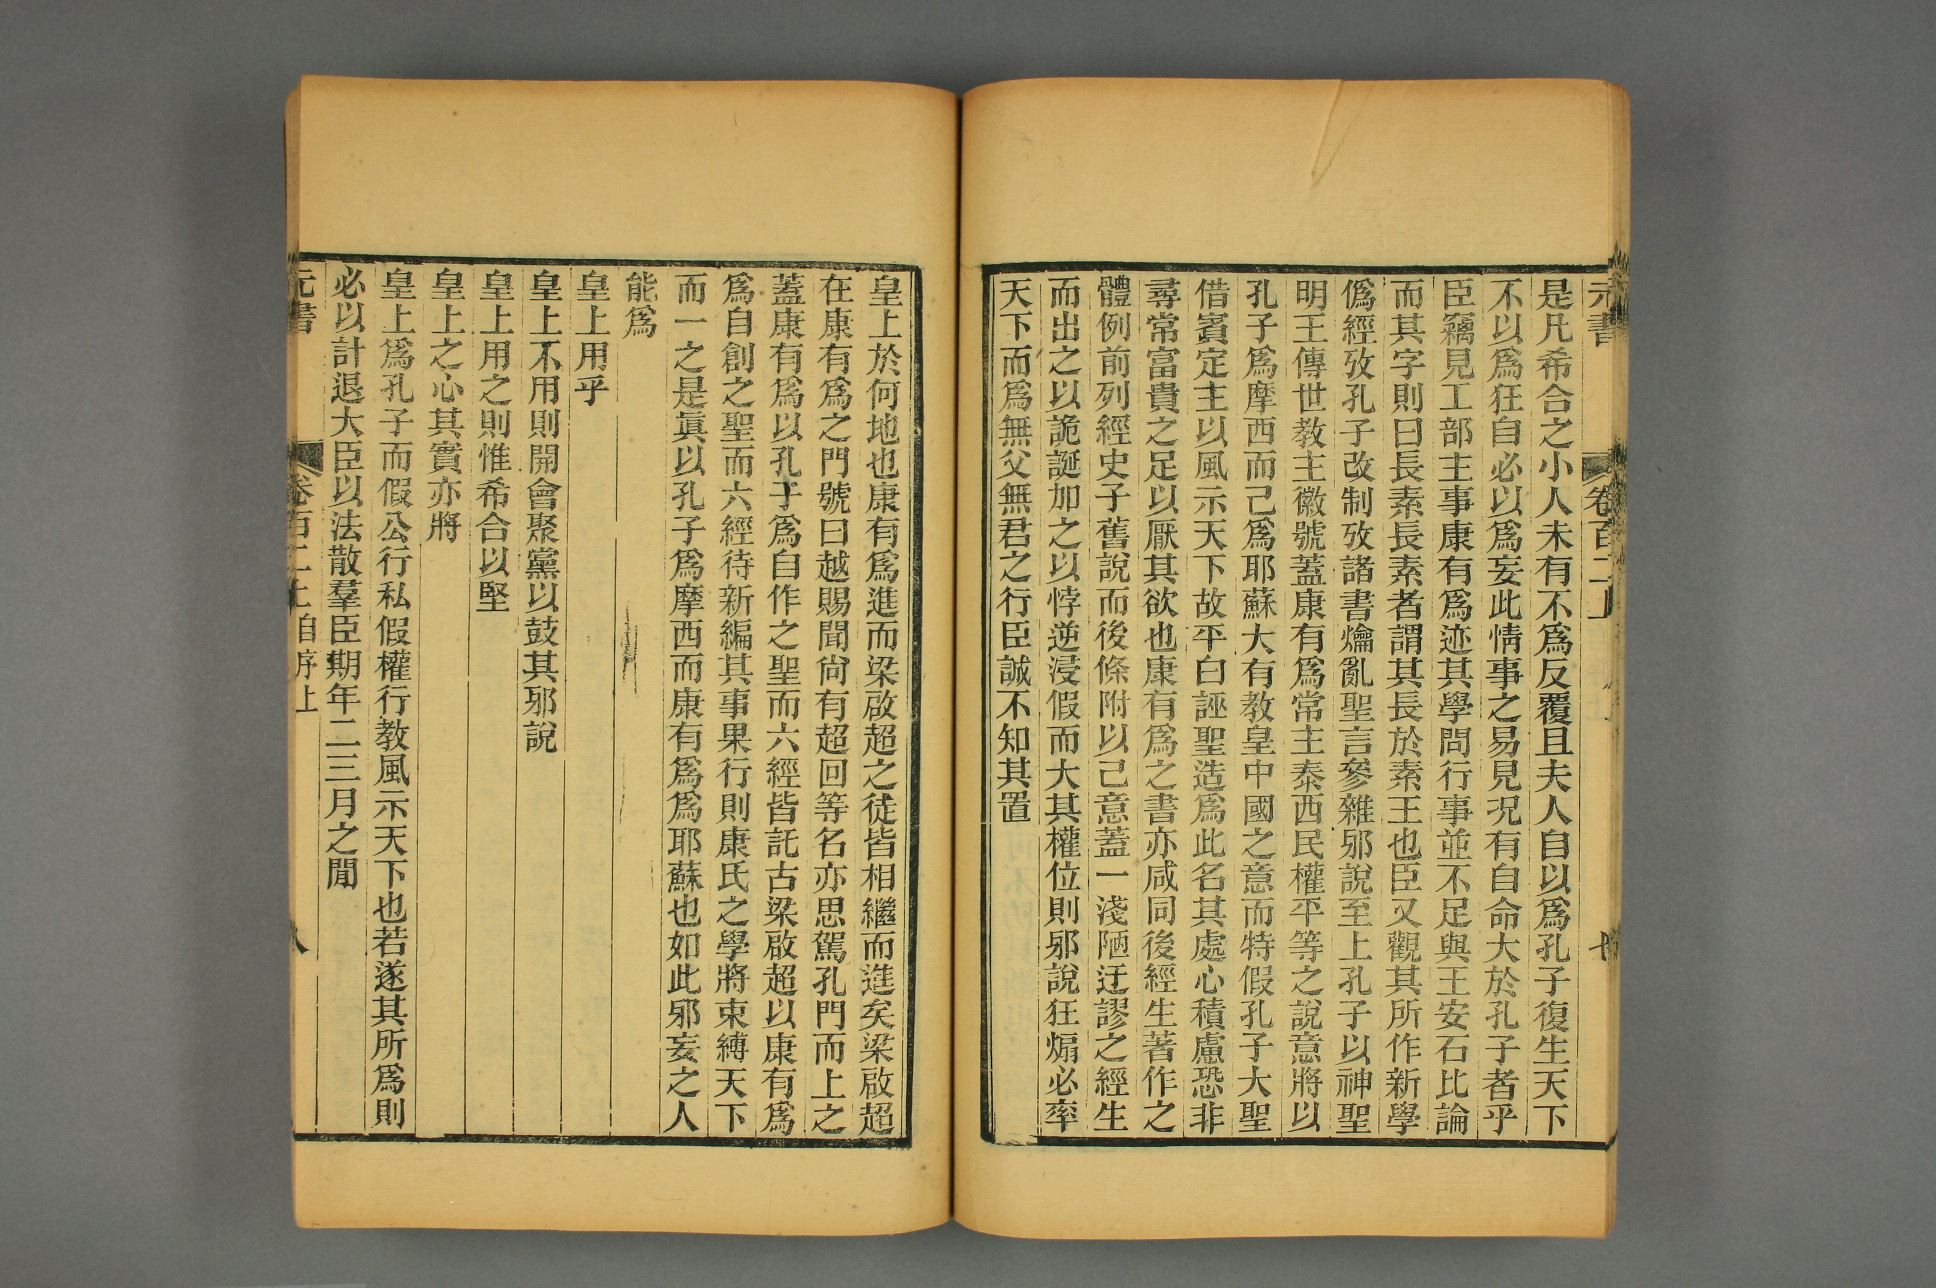 元書 卷百二上 七
是凡希合之小人未有不爲反覆且夫人自以爲孔子復生天下
不以爲狂自必以爲妄此情事之易見况有自命大於孔子者乎
臣竊見工部主事康有爲迹其學問行事並不足與王安石比論
而其字則曰長素長素者謂其長於素王也臣又觀其所作新學
僞經攷孔子改制攷諸書爚亂聖言參雜邪說至上孔子以神聖
明王傳世教主徽號蓋康有爲常主泰西民權平等之說意將以
孔子爲摩西而己爲耶蘇大有教皇中國之意而特假孔子大聖
借賓定主以風示天下故平白誣聖造爲此名其處心積慮恐非
尋常富貴之足以厭其欲也康有爲之書亦咸同後經生著作之
體例前列經史子舊說而後條附以己意蓋一淺陋迂謬之經生
而出之以詭誕加之以悖逆浸假而大其權位則邪說狂煽必率
天下而爲無父無君之行臣誠不知其置
皇上於何地也康有爲進而梁啟超之徒皆相繼而進矣梁啟超
在康有爲之門號曰越賜聞尙有超回等名亦思駕孔門而上之
蓋康有爲以孔子爲自作之聖而六經皆託古梁啟超以康有爲
爲自創之聖而六經待新編其事果行則康氏之學將束縛天下
而一之是眞以孔子爲摩西而康有爲爲耶蘇也如此邪妄之人
能爲
皇上用乎
皇上不用則開會聚黨以鼓其邪說
皇上用之則惟希合以堅
皇上之心其實亦將
皇上爲孔子而假公行私假權行教風示天下也若遂其所爲則
必以計退大臣以法散羣臣期年二三月之閒
元書 卷百二上自序上 八